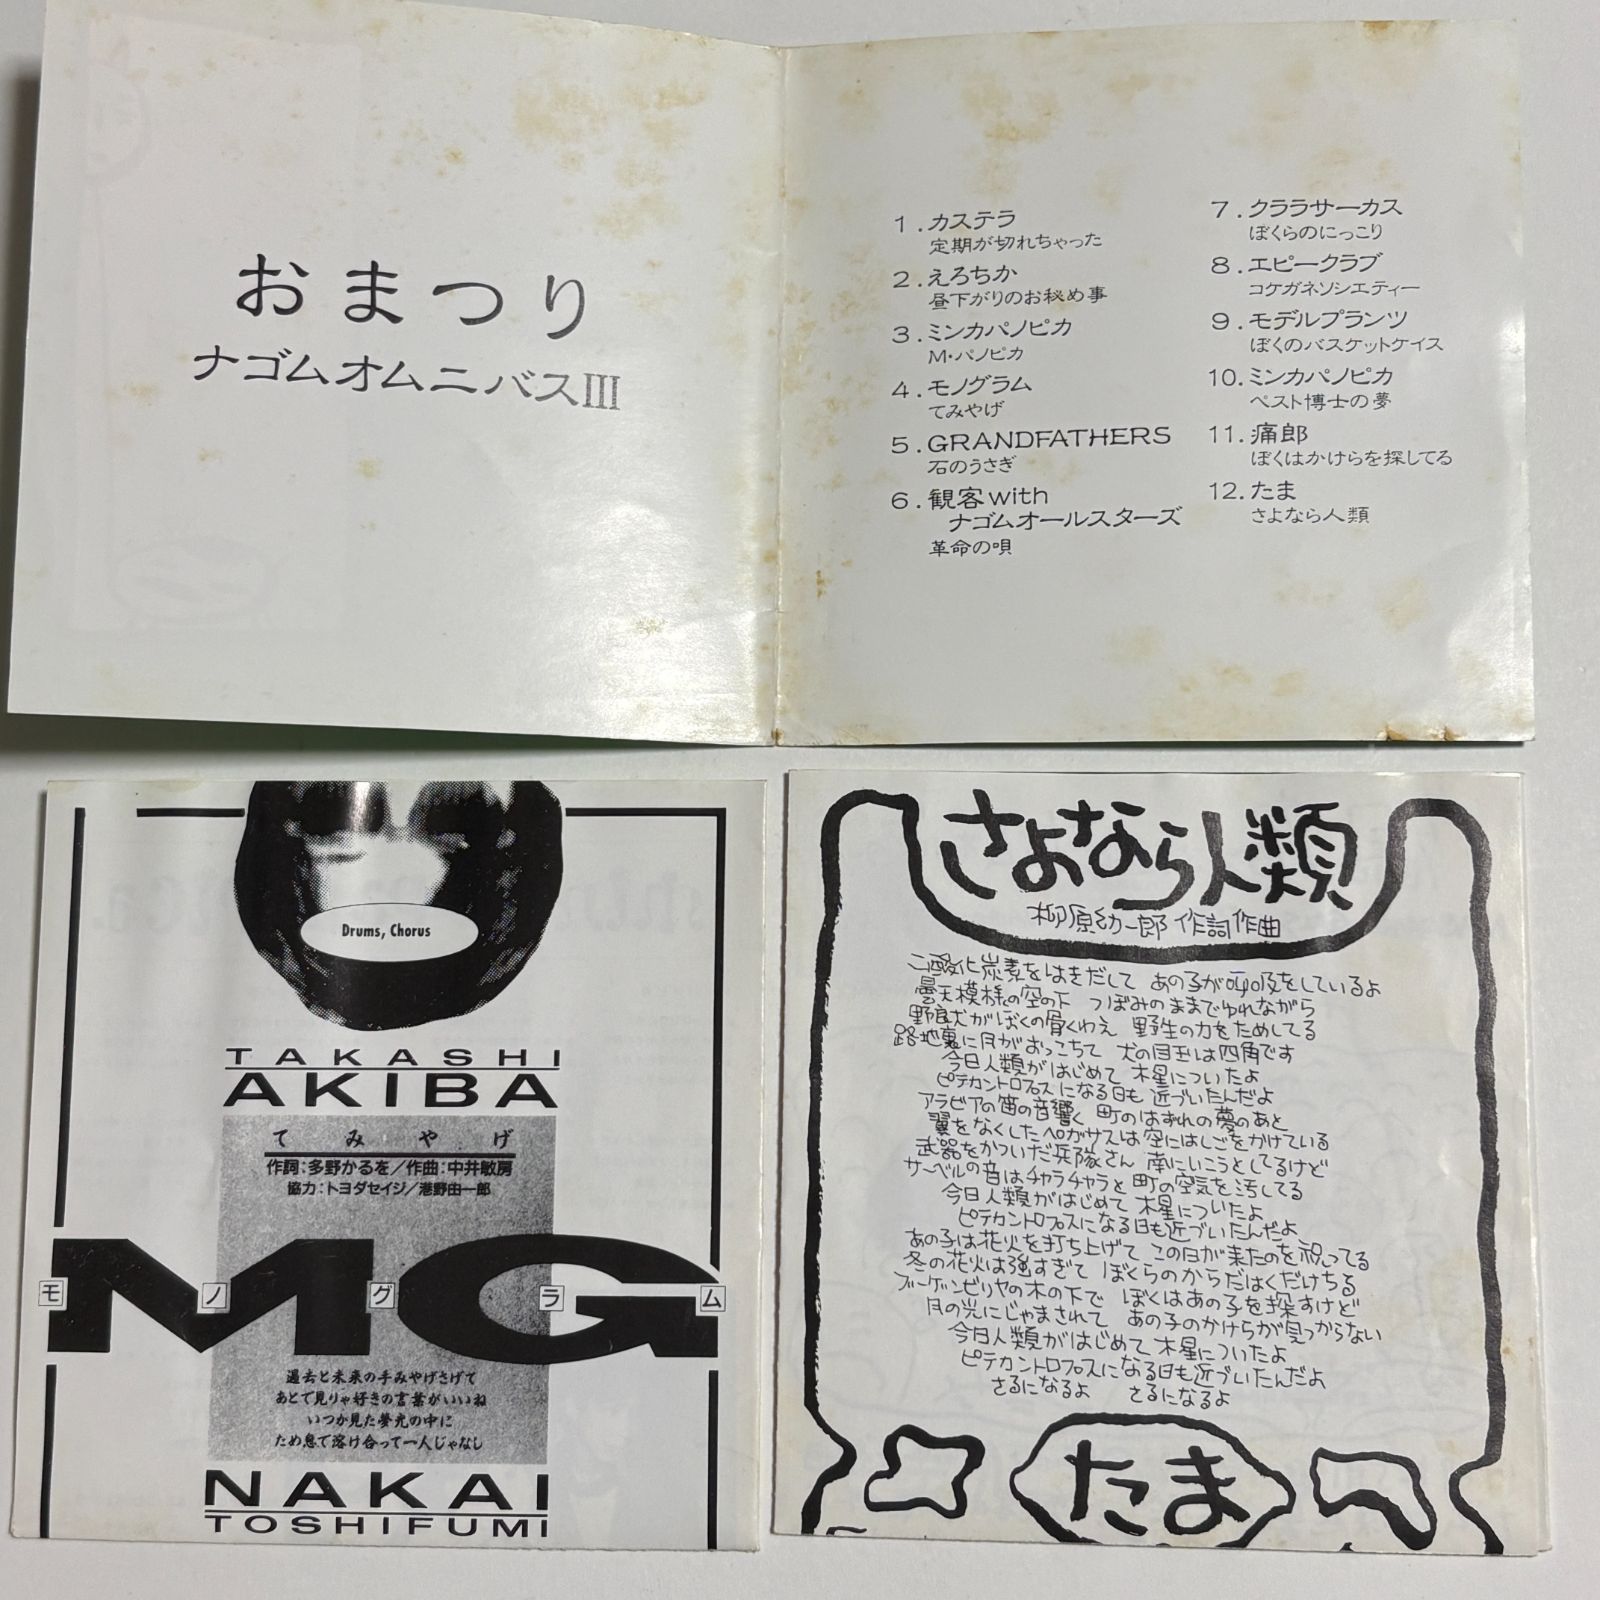 おまつり
ナゴムオムニバスIII
1.カステラ
定期が切れちゃった
2.えろちか
昼下がりのお秘め事
3.ミンカパノピカ
M・パノピカ
4.モノグラム
てみやげ
5.GRANDFATHERS
石のうさぎ
6.観客with
ナゴムオールスターズ
革命の唄
7.クララサーカス
ぼくらのにっこり
8.エピークラブ
コケガネソシエティー
9.モデルプランツ
ぼくのバスケットケイス
10.ミンカパノピカ
ペスト博士の夢
11.痛郎
ぼくはかけらを探してる
12.たま
さよなら人類
Drums, Chorus
TAKASHI
AKIBA
てみやげ
作詞:多野かるを/作曲:中井敏房
協力:トヨダセイジ/港野由一郎
MG
モノグラム
過去と未来の手みやげさげて
あとで見りゃ好きの言葉がいいね
いつか見た夢光の中に
ため息で溶け合って一人じゃなし
NAKAI
TOSHIFUMI
さよなら人類
柳原幼一郎 作詞作曲
二酸化炭素をはきだして あの子が呼吸をしているよ
曇天模様の空の下 つぼみのままでゆれながら
野良犬がぼくの骨くわえ 野生の力をためしてる
路地裏に月がおっこちて 犬の目玉は四角です
今日人類がはじめて 木星についたよ
ピテカントロプスになる日も 近づいたんだよ
アラビアの笛の音響く 町のはずれの夢のあと
翼をなくしたペガサスは 空にはしごをかけている
武器をかついだ兵隊さん 南にいこうとしてるけど
サーベルの音はチャラチャラと 町の空気を汚してる
今日人類がはじめて 木星についたよ
ピテカントロプスになる日も近づいたんだよ
あの子は花火を打ち上げて この日が来たのを祝ってる
冬の花火は強すぎて ぼくらのからだはくだけちる
ブーゲンビリヤの木の下で ぼくはあの子を探すけど
月の光にじゃまされて あの子のかけらが見つからない
今日人類がはじめて 木星についたよ
ピテカントロプスになる日も近づいたんだよ
さるになるよ さるになるよ
たま